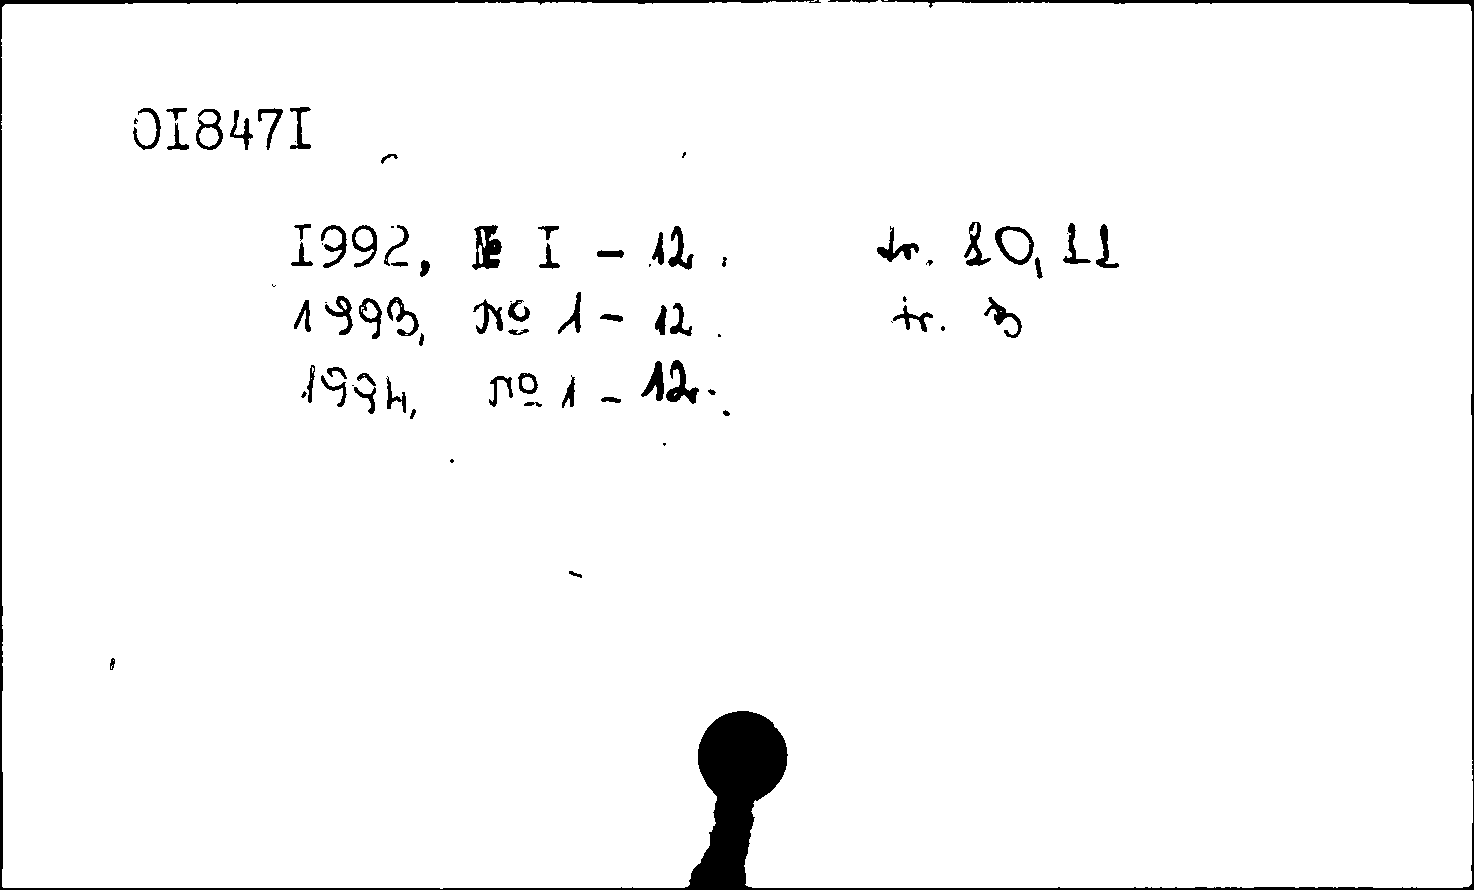 OI847I
I992, № I - 12. tr. 10, 11
1993, Nº 1 - 12. tr. 3
1994, Nº 1 - 12.